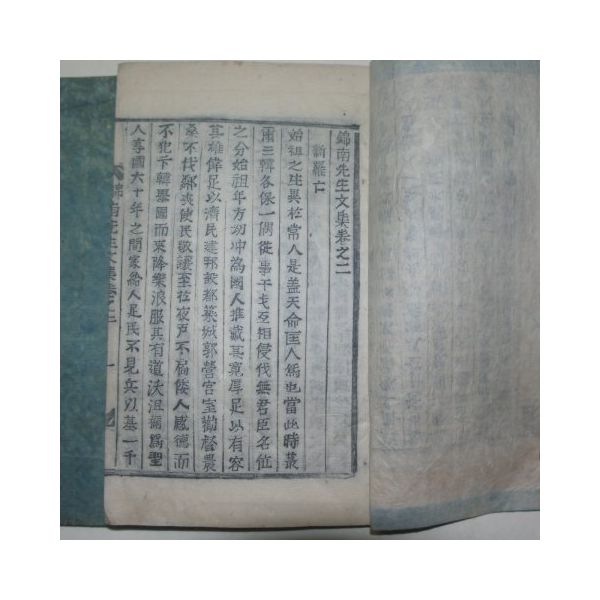 錦南先生文集卷之二
新羅亡
始祖之生異於常人是盖天命匪人爲也當此時叢
爾三韓各保一隅從事干戈互相侵伐無君臣名位
之分始祖年方幼冲為國人推戴其寬厚足以有容
其雄偉足以濟民建邦設都築城郭營宮室勸督農
桒不伐鄰使民敬讓至於夜戶不扃倭人感德而
不犯卞韓擧國而來降樂浪服其有道沃沮稱爲聖
人享國六十年之間家給人足民不見兵以基一千
錦南先生文集卷之二 一